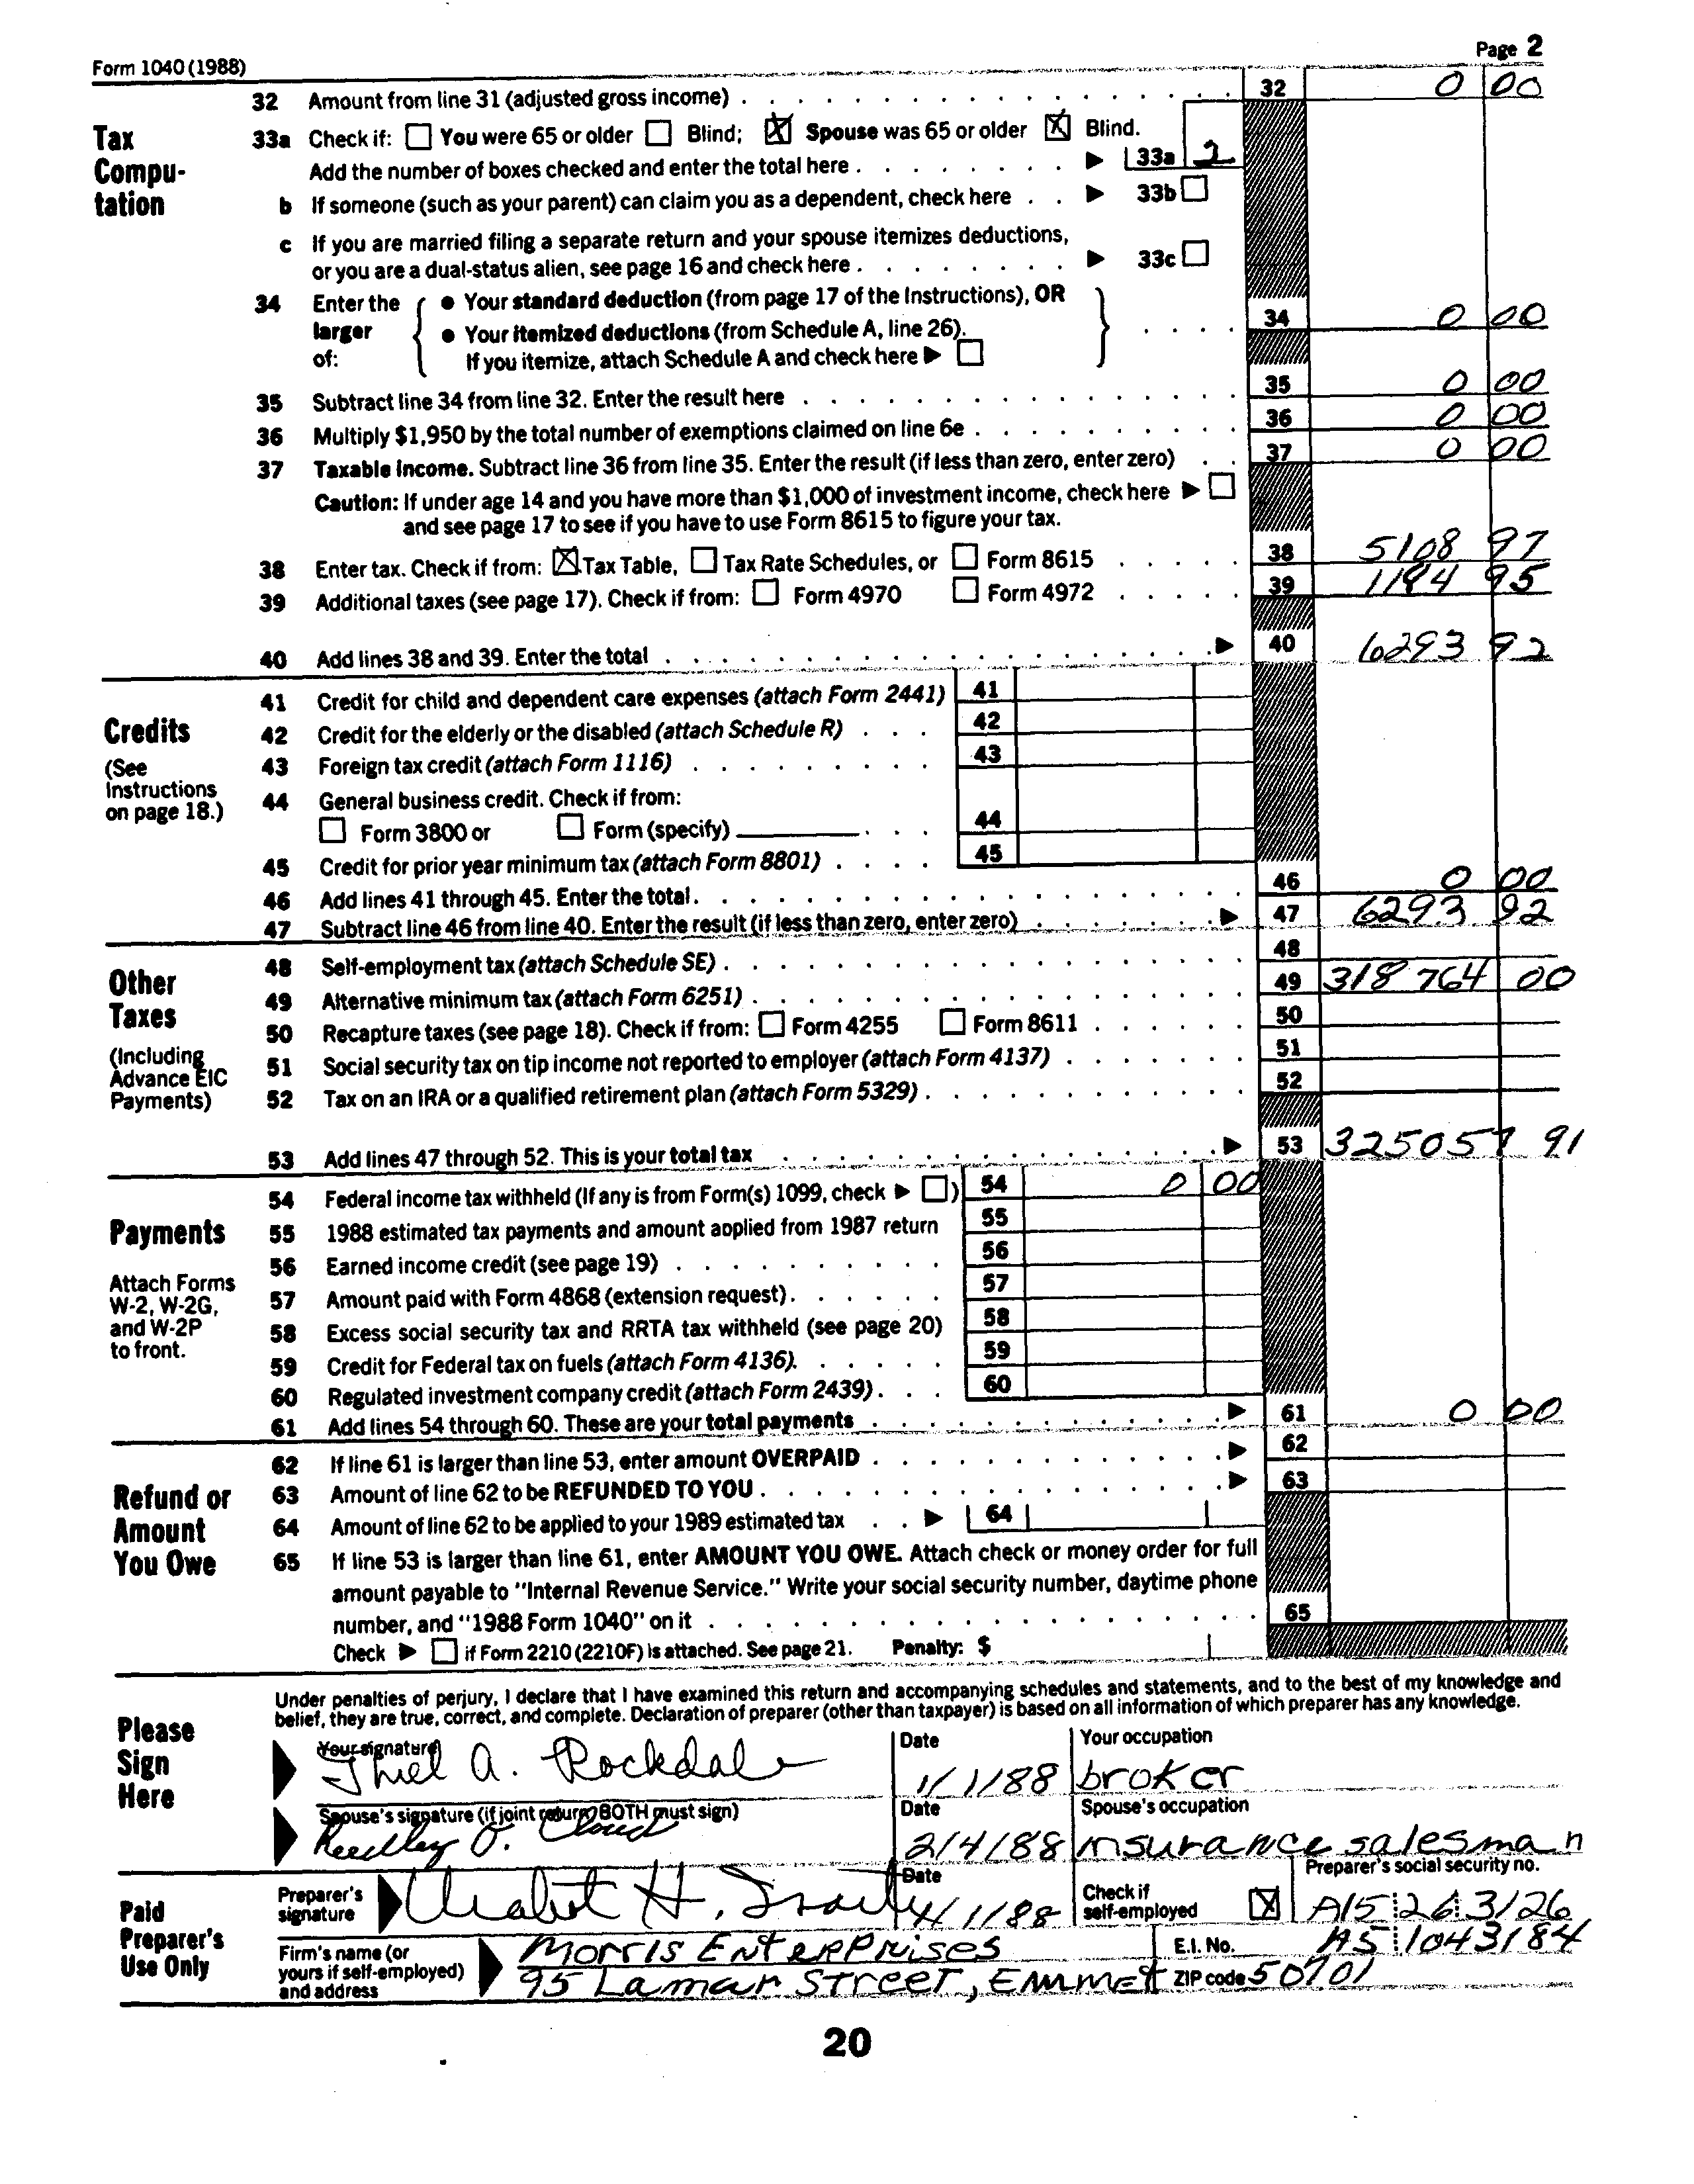 Form 1040 (1988) Page 2
Tax Compu-tation
32 Amount from line 31 (adjusted gross income) 32 0 00
33a Check if: ☐ You were 65 or older ☐ Blind; ☒ Spouse was 65 or older ☒ Blind.
Add the number of boxes checked and enter the total here ▶ 33a 2
b If someone (such as your parent) can claim you as a dependent, check here ▶ 33b ☐
c If you are married filing a separate return and your spouse itemizes deductions,
or you are a dual-status alien, see page 16 and check here ▶ 33c ☐
34 Enter the larger of: { ● Your standard deduction (from page 17 of the Instructions), OR
● Your itemized deductions (from Schedule A, line 26).
If you itemize, attach Schedule A and check here ▶ ☐ } 34 0 00
35 Subtract line 34 from line 32. Enter the result here 35 0 00
36 Multiply $1,950 by the total number of exemptions claimed on line 6e 36 0 00
37 Taxable income. Subtract line 36 from line 35. Enter the result (if less than zero, enter zero) 37 0 00
Caution: If under age 14 and you have more than $1,000 of investment income, check here ▶ ☐
and see page 17 to see if you have to use Form 8615 to figure your tax.
38 Enter tax. Check if from: ☒ Tax Table, ☐ Tax Rate Schedules, or ☐ Form 8615 38 5108 97
39 Additional taxes (see page 17). Check if from: ☐ Form 4970 ☐ Form 4972 39 1184 95
40 Add lines 38 and 39. Enter the total ▶ 40 6293 92
Credits
(See Instructions on page 18.)
41 Credit for child and dependent care expenses (attach Form 2441) 41
42 Credit for the elderly or the disabled (attach Schedule R) 42
43 Foreign tax credit (attach Form 1116) 43
44 General business credit. Check if from:
☐ Form 3800 or ☐ Form (specify) 44
45 Credit for prior year minimum tax (attach Form 8801) 45
46 Add lines 41 through 45. Enter the total 46 0 00
47 Subtract line 46 from line 40. Enter the result (if less than zero, enter zero) ▶ 47 6293 92
Other Taxes
(Including Advance EIC Payments)
48 Self-employment tax (attach Schedule SE) 48
49 Alternative minimum tax (attach Form 6251) 49 318 764 00
50 Recapture taxes (see page 18). Check if from: ☐ Form 4255 ☐ Form 8611 50
51 Social security tax on tip income not reported to employer (attach Form 4137) 51
52 Tax on an IRA or a qualified retirement plan (attach Form 5329) 52
53 Add lines 47 through 52. This is your total tax ▶ 53 325057 91
Payments
Attach Forms W-2, W-2G, and W-2P to front.
54 Federal income tax withheld (If any is from Form(s) 1099, check ▶ ☐) 54 0 00
55 1988 estimated tax payments and amount applied from 1987 return 55
56 Earned income credit (see page 19) 56
57 Amount paid with Form 4868 (extension request) 57
58 Excess social security tax and RRTA tax withheld (see page 20) 58
59 Credit for Federal tax on fuels (attach Form 4136) 59
60 Regulated investment company credit (attach Form 2439) 60
61 Add lines 54 through 60. These are your total payments ▶ 61 0 00
Refund or Amount You Owe
62 If line 61 is larger than line 53, enter amount OVERPAID ▶ 62
63 Amount of line 62 to be REFUNDED TO YOU ▶ 63
64 Amount of line 62 to be applied to your 1989 estimated tax ▶ 64
65 If line 53 is larger than line 61, enter AMOUNT YOU OWE. Attach check or money order for full
amount payable to "Internal Revenue Service." Write your social security number, daytime phone
number, and "1988 Form 1040" on it 65
Check ▶ ☐ if Form 2210 (2210F) is attached. See page 21. Penalty: $
Please Sign Here
Under penalties of perjury, I declare that I have examined this return and accompanying schedules and statements, and to the best of my knowledge and
belief, they are true, correct, and complete. Declaration of preparer (other than taxpayer) is based on all information of which preparer has any knowledge.
Your signature Thiel A. Rockdale Date 1/1/88 Your occupation broker
Spouse's signature (if joint return, BOTH must sign) Reedley O. Cloud Date 2/4/88 Spouse's occupation insurance salesman
Paid Preparer's Use Only
Preparer's signature Chabot H. Date 4/1/88 Check if self-employed ☒ Preparer's social security no. A15 26 3126
Firm's name (or yours if self-employed) and address Morris Enterprises E.I. No. A5 1043184
95 Lamar Street, Emmet ZIP code 50701
20